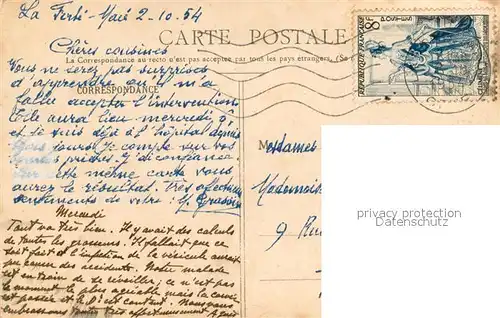 La Ferté-Macé 2-10.54
Chères cousines
CARTE POSTALE
La Correspondance au recto n'est pas acceptée par tous les pays étrangers. (Se
CORRESPONDANCE
Vous ne serez pas surprises
d'apprendre qu'il m'a
fallu accepter l'intervention
Elle aura lieu mercredi 6
et je suis déjà à l'hôpital depuis
jours. Je compte sur vos
bonnes prières. J'ai confiance.
Sur cette même carte vous
aurez le résultat. Très affectueux
sentiments de votre
Mercredi
Tout va très bien. Il y avait des calculs
de toutes les grosseurs. Il fallait que ce
soit fait et l'infection de la vésicule aurait
pu causer des accidents. Notre malade
est en train de se réveiller; ce n'est pas
le moment le plus agréable mais la
est passée et le Dr est content. Nous vous
embrassons toutes très affectueusement
Mesdames
Mademois
9 Rue
8F
POSTES
REPUBLIQUE FRANÇAISE
privacy protection
by AKpool.de